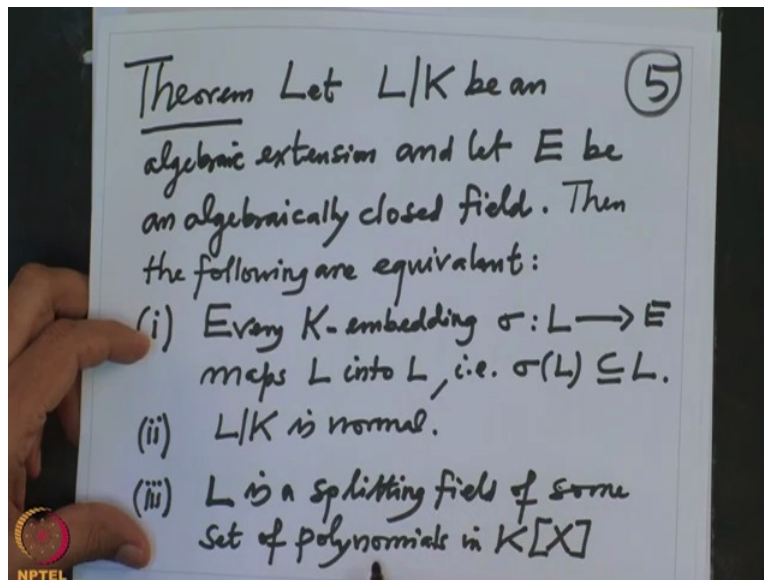 Theorem Let L|K be an
5
algebraic extension and let E be
an algebraically closed field. Then
the following are equivalent:
(i) Every K-embedding σ: L ⟶ E
maps L into L, i.e. σ(L) ⊆ L.
(ii) L|K is normal.
(iii) L is a splitting field of some
set of polynomials in K[X]
NPTEL